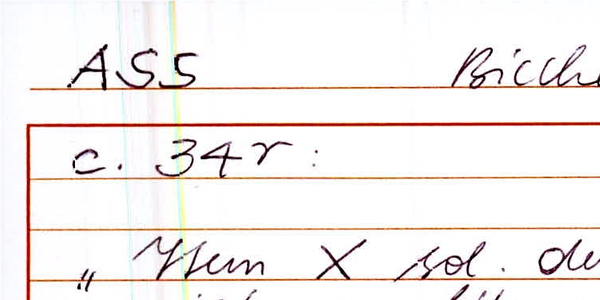 ASS Bicch
c. 34r:
„ Item X sol. de